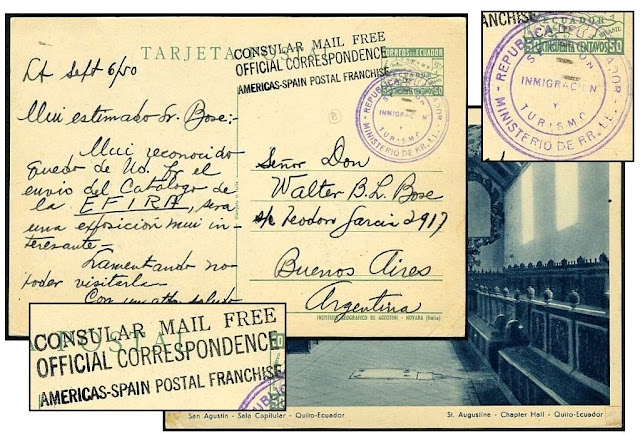 TARJETA POSTAL
CONSULAR MAIL FREE
OFFICIAL CORRESPONDENCE
AMERICAS-SPAIN POSTAL FRANCHISE
CORREOS DEL ECUADOR
CINCUENTA CENTAVOS
50
LA Sept 6/50
Mui estimado Sr. Bose:-
Mui reconocido
quedo de Ud. por el
envio del Catálogo de
la EFIRA, sera
una exposición mui in-
teresante-
Lamentando no
poder visitarla
Con un atto saludo
Señor Don
Walter B. L. Bose
s/c Teodoro Garcia 2917
Buenos Aires
Argentina
INSTITUTO GEOGRAFICO DE AGOSTINI - NOVARA (Italia)
REPUBLICA DEL ECUADOR
INMIGRACION
Y
TURISMO
MINISTERIO DE RR. EE.
NCHISE
ECUADOR
CENTAVOS
50
REPUBLICA DE
ADOR
INMIGRACION
Y
TURISMO
MINISTERIO DE RR.
POSTAL
CONSULAR MAIL FREE
OFFICIAL CORRESPONDENCE
AMERICAS-SPAIN POSTAL FRANCHISE
San Agustín - Sala Capitular - Quito-Ecuador
St. Augustine - Chapter Hall - Quito-Ecuador